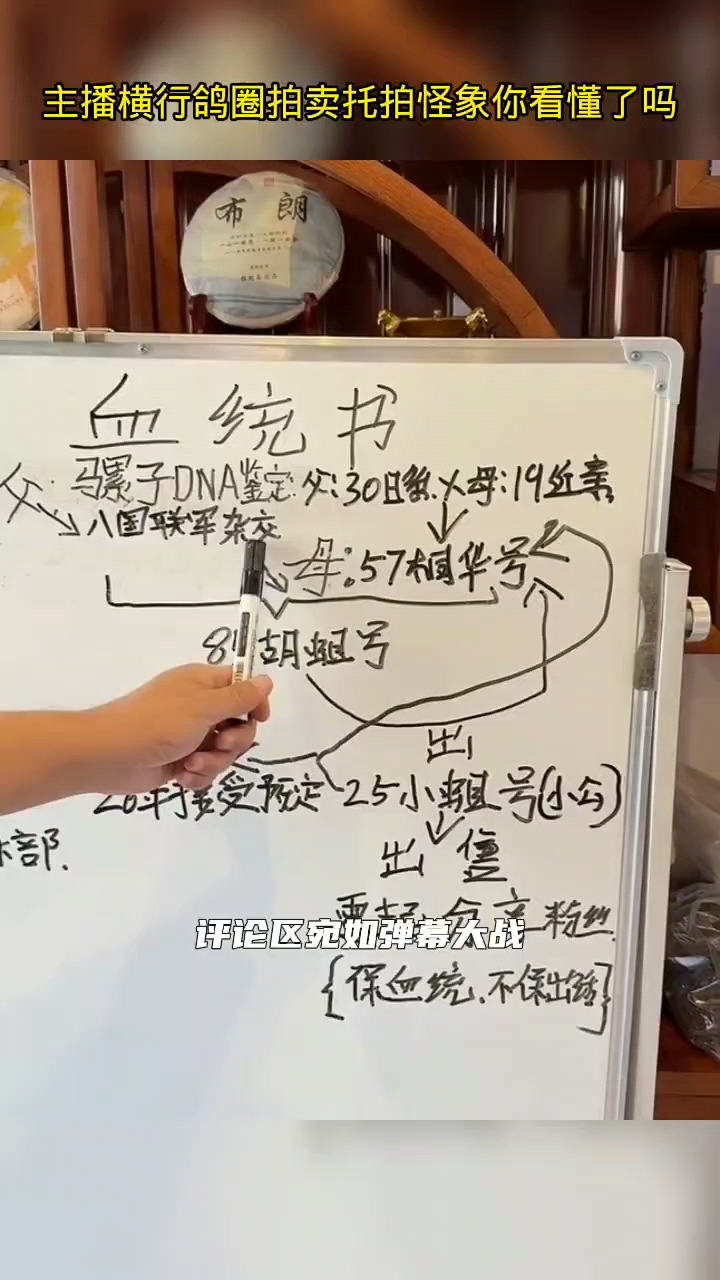 主播横行鸽圈拍卖托拍怪象你看懂了吗
布朗
血统书
父:骡子DNA鉴定 父:30日系 母:19近亲
八国联军杂交
母:57相华号
胡蛆号
出
接受预定 25小蛆号(小公)
出售
部.
分享粉丝
评论区宛如弹幕大战
{保血统、不保出鸽}